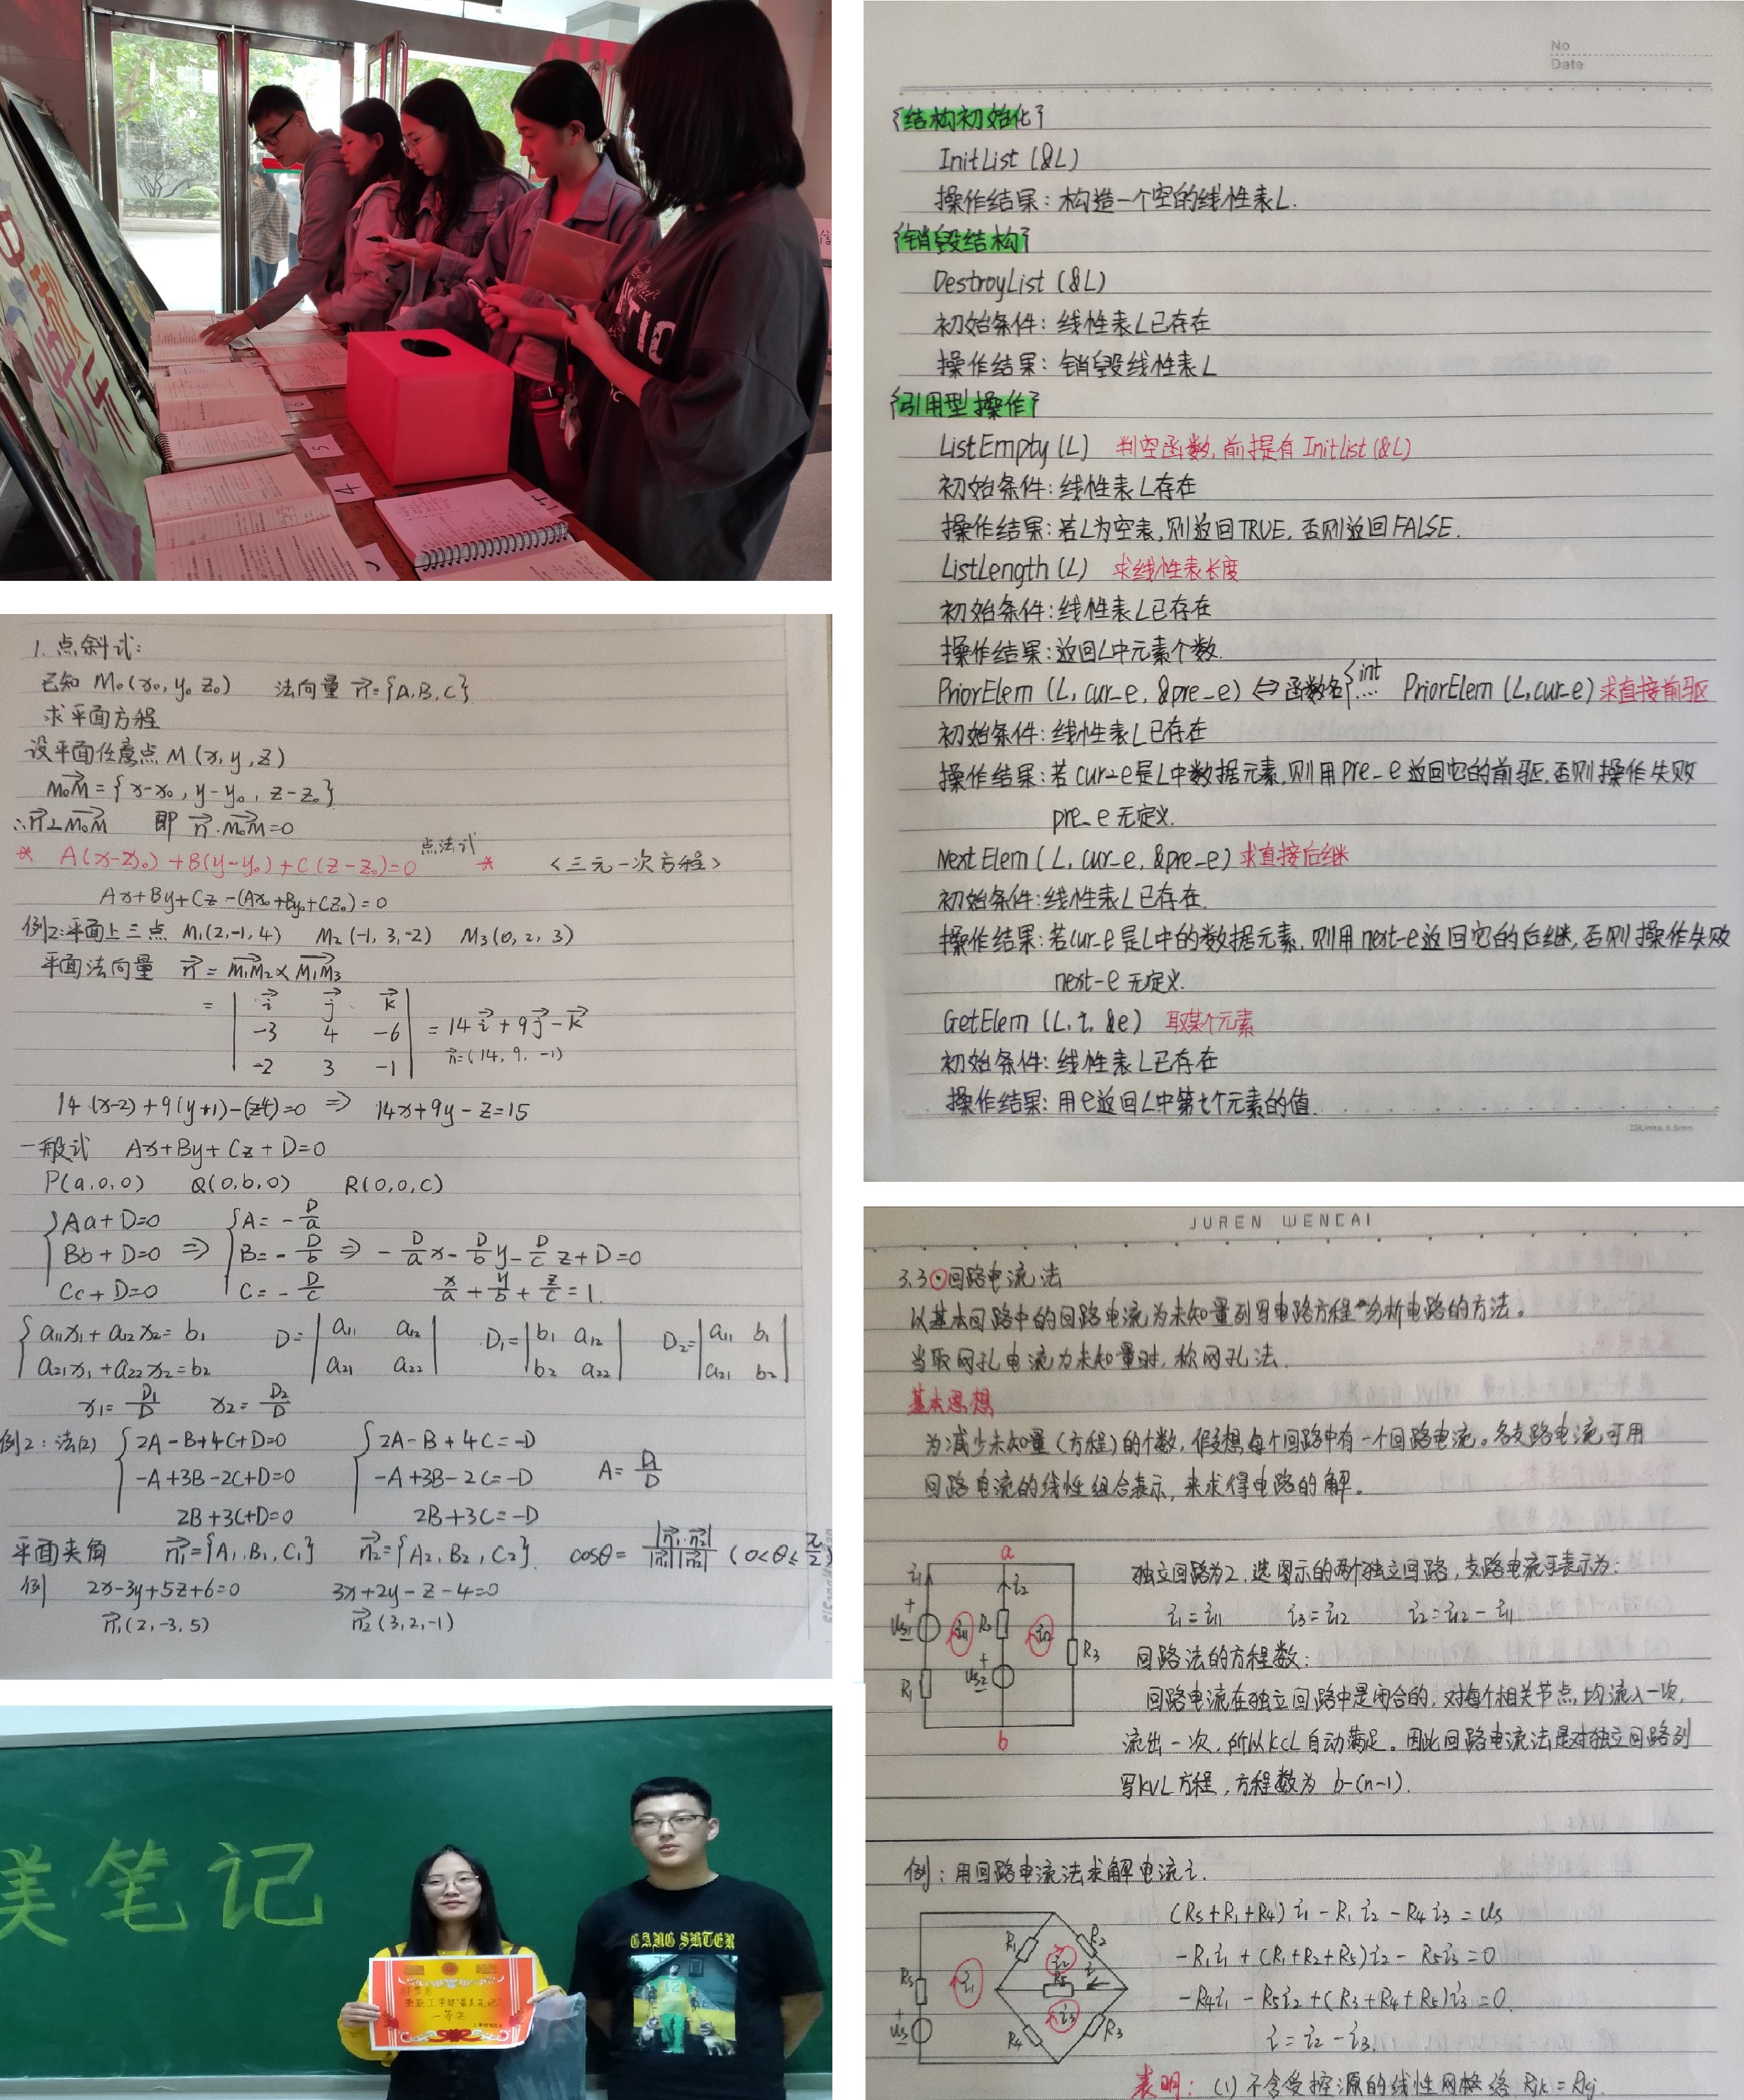 中秋快乐
5
4
1. 点斜式:
已知 M₀(x₀, y₀ z₀) 法向量 n⃗={A,B,C}
求平面方程
设平面任意点 M(x,y,z)
M₀M⃗={x-x₀, y-y₀, z-z₀}
∴n⃗⊥M₀M⃗ 即 n⃗·M₀M⃗=0
* A(x-x₀)+B(y-y₀)+C(z-z₀)=0 点法式 * <三元一次方程>
Ax+By+Cz-(Ax₀+By₀+Cz₀)=0
例2:平面上三点 M₁(2,-1,4) M₂(-1,3,-2) M₃(0,2,3)
平面法向量 n⃗=M₁M₂⃗×M₁M₃⃗
= | i⃗ j⃗ k⃗ |
| -3 4 -6 | =14i⃗+9j⃗-k⃗
| -2 3 -1 | n⃗=(14, 9, -1)
14(x-2)+9(y+1)-(z-4)=0 ⇒ 14x+9y-z=15
一般式 Ax+By+Cz+D=0
P(a,0,0) Q(0,b,0) R(0,0,c)
{Aa+D=0 {A=-D/a
Bb+D=0 ⇒ B=-D/b ⇒ -D/a x-D/b y-D/c z+D=0
Cc+D=0 C=-D/c x/a+y/b+z/c=1.
{a₁₁x₁+a₁₂x₂=b₁ D=|a₁₁ a₁₂| D₁=|b₁ a₁₂| D₂=|a₁₁ b₁|
a₂₁x₁+a₂₂x₂=b₂ |a₂₁ a₂₂| |b₂ a₂₂| |a₂₁ b₂|
x₁=D₁/D x₂=D₂/D
例2: 法(2) {2A-B+4C+D=0 {2A-B+4C=-D
-A+3B-2C+D=0 -A+3B-2C=-D A=D₁/D
2B+3C+D=0 2B+3C=-D
平面夹角 n₁⃗={A₁,B₁,C₁} n₂⃗={A₂,B₂,C₂}. cosθ=|n₁⃗·n₂⃗|/|n₁⃗||n₂⃗| (0<θ≤π/2)
例 2x-3y+5z+6=0 3x+2y-z-4=0
n₁⃗(2,-3,5) n₂⃗(3,2,-1)
美笔记
GANG SHTER
一等奖
No
Date
{结构初始化}
InitList (&L)
操作结果: 构造一个空的线性表L.
{销毁结构}
DestroyList (&L)
初始条件: 线性表L已存在
操作结果: 销毁线性表L
{引用型操作}
ListEmpty (L) 判空函数, 前提有 Initlist (&L)
初始条件: 线性表L存在
操作结果: 若L为空表, 则返回TRUE, 否则返回FALSE.
ListLength (L) 求线性表长度
初始条件: 线性表L已存在
操作结果: 返回L中元素个数.
PriorElem (L, cur_e, &pre_e) ⇔ 函数名{int … PriorElem (L,cur_e) 求直接前驱
初始条件: 线性表L已存在
操作结果: 若cur_e是L中数据元素, 则用pre_e返回它的前驱, 否则操作失败
pre_e无定义.
NextElem (L, cur_e, &pre_e) 求直接后继
初始条件: 线性表L已存在.
操作结果: 若cur_e是L中的数据元素, 则用next-e返回它的后继, 否则操作失败
next-e无定义.
GetElem (L, i, &e) 取某个元素
初始条件: 线性表L已存在
操作结果: 用e返回L中第i个元素的值.
JUREN WENCAI
3.3⊙回路电流法
以基本回路中的回路电流为未知量列写电路方程分析电路的方法。
当取网孔电流为未知量时, 称网孔法.
基本思想
为减少未知量(方程)的个数, 假想每个回路中有一个回路电流。各支路电流可用
回路电流的线性组合表示, 来求得电路的解。
a
i₁
i₂
+
us1
-
il1
R₂
il2
R₃
+
us2
-
R₁
b
独立回路为2, 选图示的两个独立回路, 支路电流可表示为:
i₁=il1 i₃=il2 i₂=il2-il1
回路法的方程数:
回路电流在独立回路中是闭合的, 对每个相关节点均流入一次,
流出一次, 所以KCL自动满足。因此回路电流法是对独立回路列
写KVL方程, 方程数为 b-(n-1).
例: 用回路电流法求解电流i.
R₁
R₂
i₂
i
Rs
i₁
R₅
i₃
+
us
-
R₄
R₃
(Rs+R₁+R₄)i₁-R₁i₂-R₄i₃=us
-R₁i₁+(R₁+R₂+R₅)i₂-R₅i₃=0
-R₄i₁-R₅i₂+(R₃+R₄+R₅)i₃=0.
i=i₂-i₃.
表明: (1) 不含受控源的线性网络 Rjk=Rkj